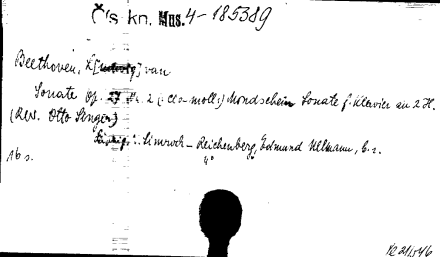 Čís. kn. Mus. 4-185389
Beethoven, L[udwig] van
Sonate Op. 27 Nr. 2 (: cis-moll :) Mondschein Sonate f. Klavier zu 2 H.
(Rev. Otto Singer)
Leipzig : Simrock - Reichenberg, Edmund Ullmann, b. r.
16 s.